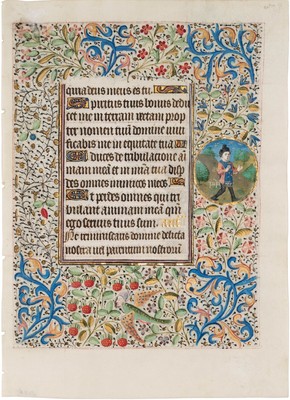 quia deus meus es tu
Spiritus tuus bonus dedu
cet me in terram rectam prop
ter nomen tuū domine vivi
ficabis me in equitate tua
Educes de tribulatione aī
mam meā et in mīa tua disp
des omnes inimicos meos
Et perdes omnes qui tri
bulant animam meā qm̄
ego servus tuus sum
Ne reminiscaris domine delicta
nostra vel parentum nostrorum